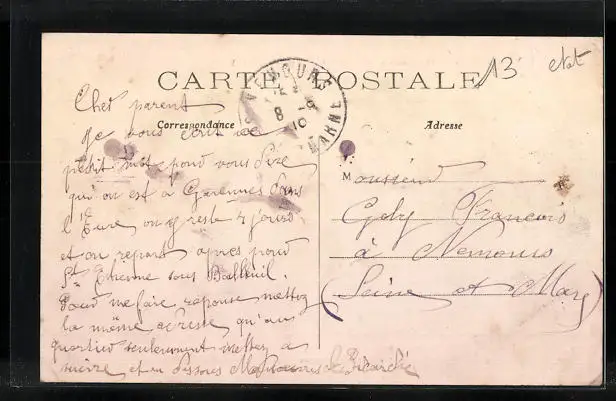 13 etat
CARTE POSTALE
Correspondance
Adresse
BOURG
8 -9
10
MARNE
Chet parent
Je vous ecrit ce
petit mot pour vous dire
qu'on est à Garennes dans
l'Eure on y reste 4 jours
et on repart apres pour
St Etienne sous Bailleuil.
Pour me faire reponse mettez
la même adresse qu'au
quartier seulement mettez a
suivre et en dessous Manoeuvres de Picardie
Monsieur
Goby Francois
à Nemours
(Seine et Marne)